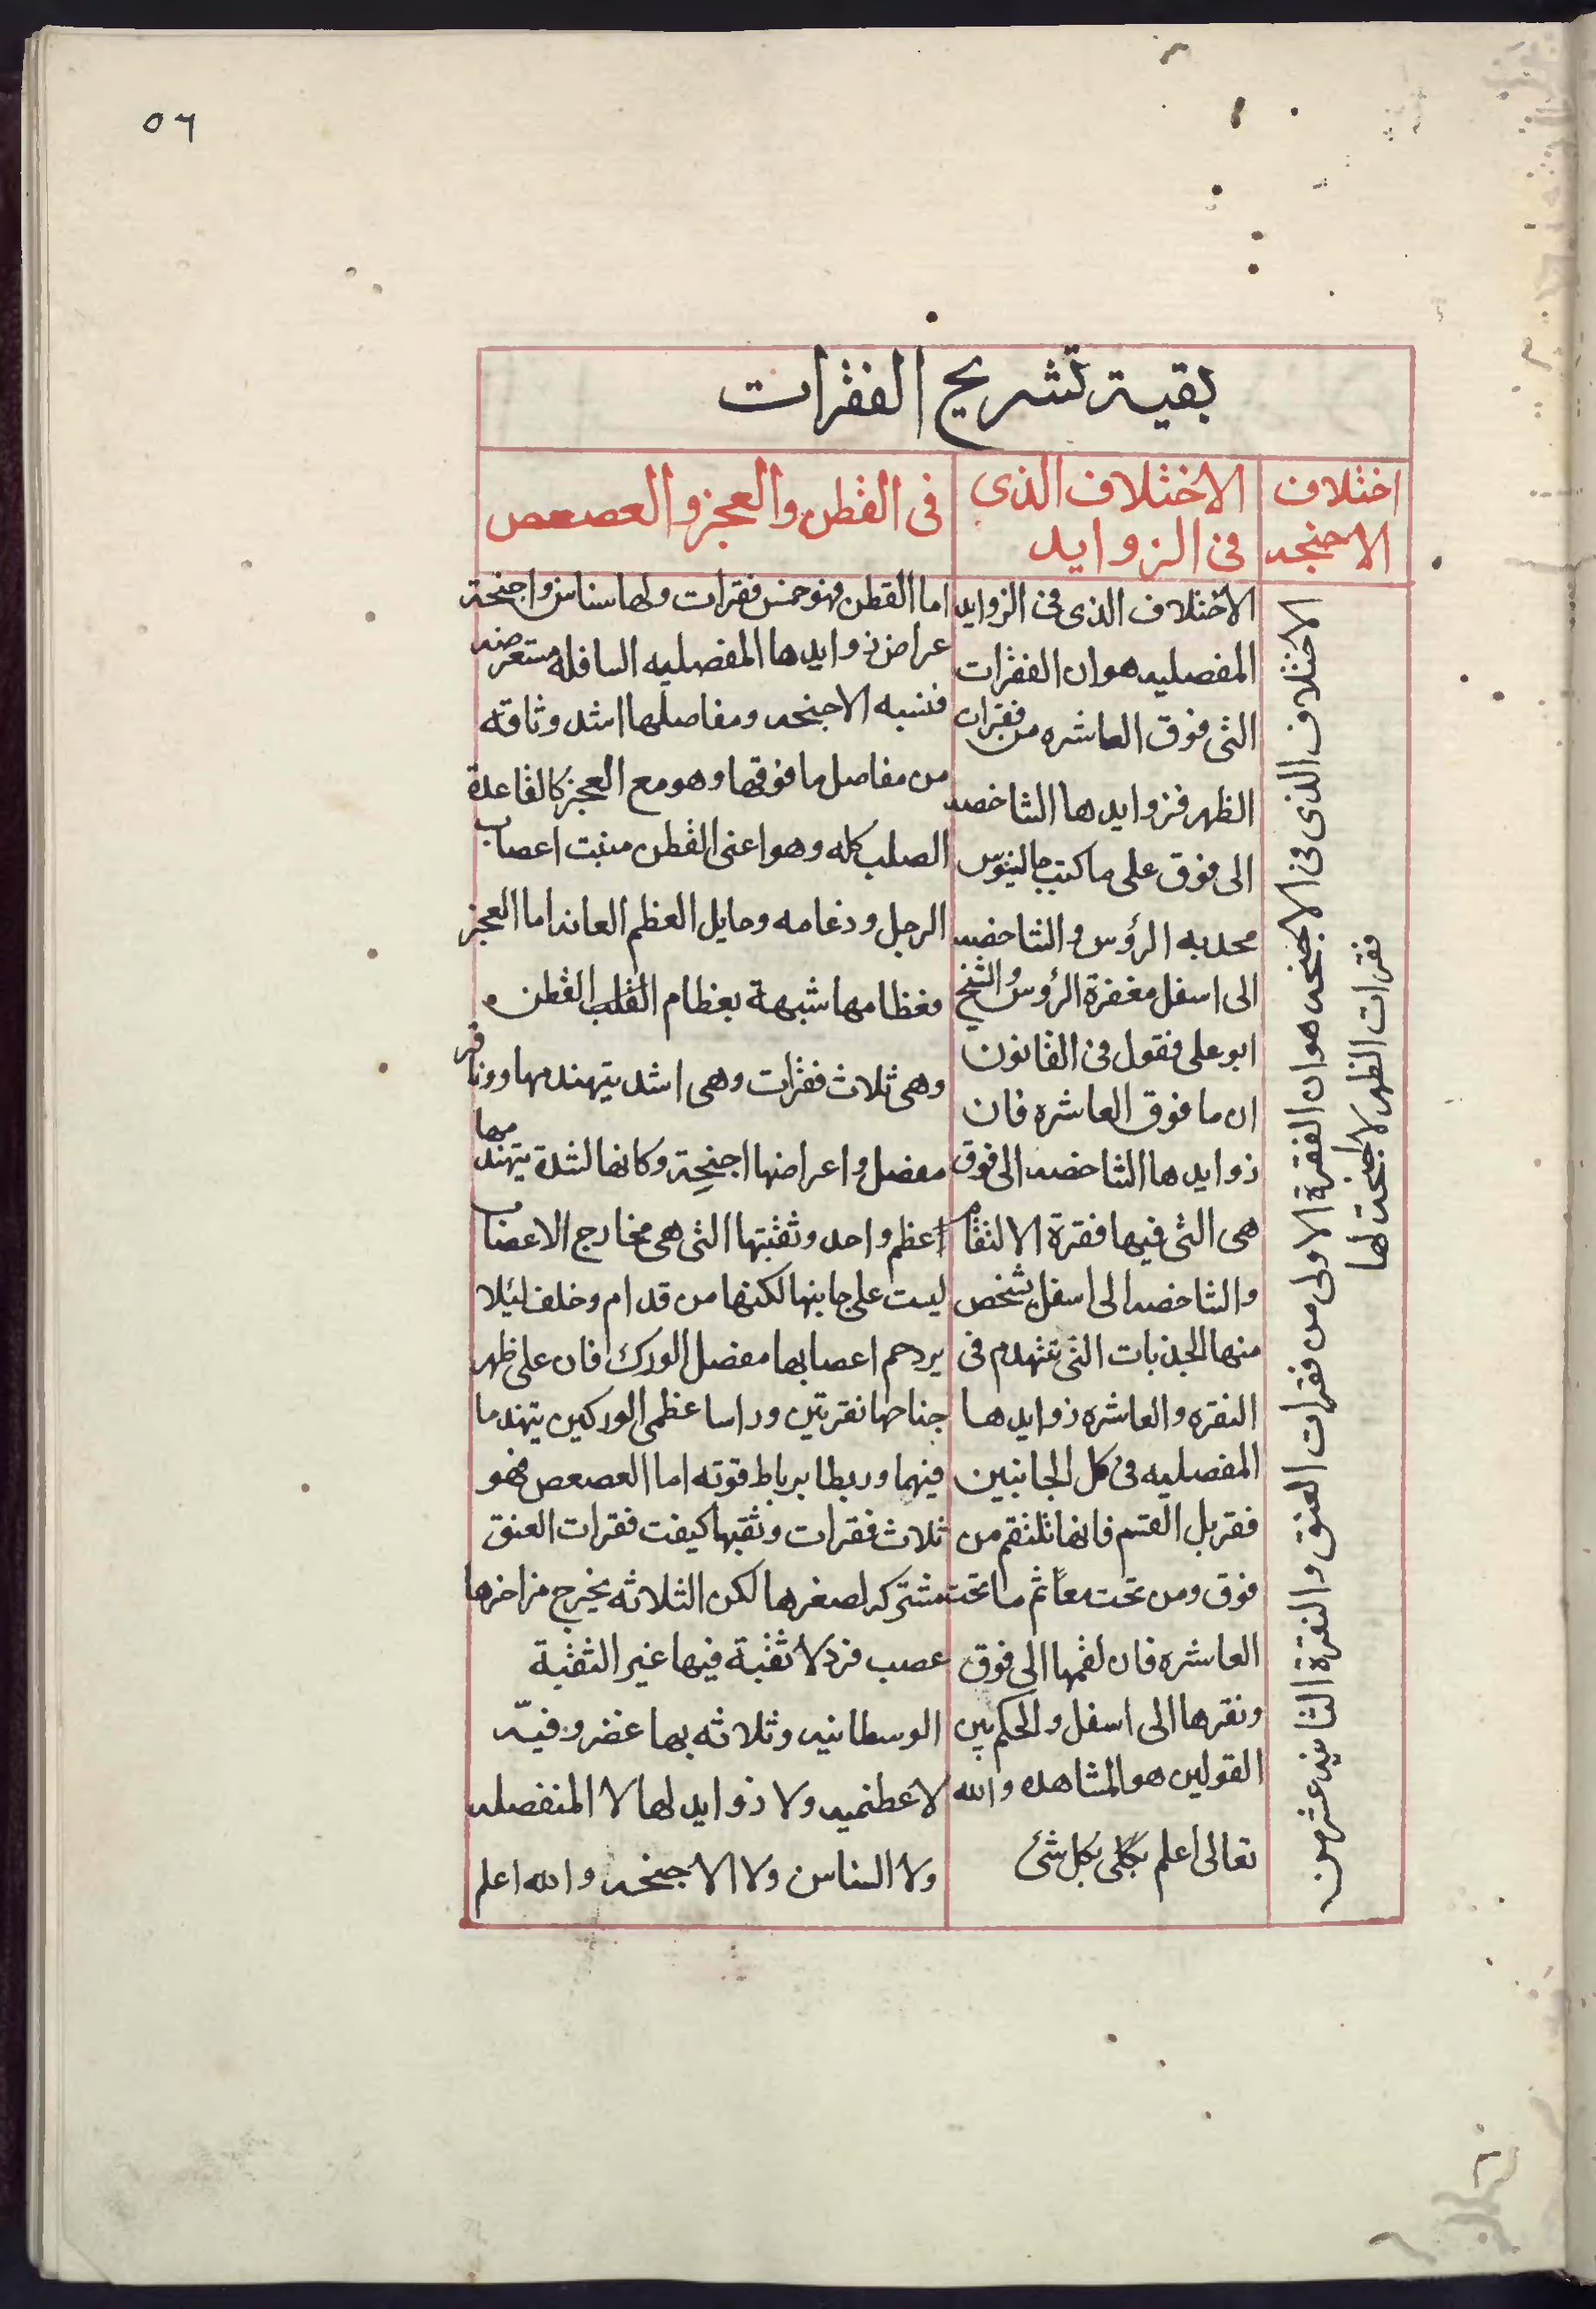 ٥٦
بقية تشريح الفقرات
اختلاف
الاجنحه
الاختلاف الذى
فى الزوايد
فى القطن والعجز والعصعص
الاختلاف الذى فى الاجنحه هو ان الفقرة الاولى من فقرات العنق والنقرة الثانيه عشر من
فقرات الظهر لا اجنحة لها
الاختلاف الذى فى الزوايد
المفصليه هو ان الفقرات
التى فوق العاشره من فقرات
الظهر فزوايدها الشاخصه
الى فوق على ما كتب جالينوس
محدبه الرؤس والشاخصه
الى اسفل مغفرة الرؤس والشيخ
ابو على فقول فى القانون
ان ما فوق العاشره فان
زوايدها الشاخصه الى فوق
هى التى فيها فقرة الالتقام
والشاخصه الى اسفل يشخص
منها الحدبات التى تتهدم فى
النقره والعاشره زوايدها
المفصليه فى كل الجانبين
فقر بل القسم فانها تلتقم من
فوق ومن تحت معاً ثم ما تحت
العاشره فان لقمها الى فوق
ونقرها الى اسفل والحكم بين
القولين هو المشاهده والله
تعالى اعلم بكل شئ
اما القطن فهو خمس فقرات ولها سناسن واجنحة
عراض زوايدها المفصليه السافله مستعرضه
فتشبه الاجنحه ومفاصلها اشد وثاقه
من مفاصل ما فوقها وهو مع العجز كالقاعدة
الصلب كله وهو اعنى القطن منبت اعصاب
الرجل ودعامه وحايل العظم العانه اما العجز
فعظامها شبهة بعظام القلب القطن
وهى ثلاث فقرات وهى اشد يتهندمها ووثاقه
مفصل واعراضها اجنحة وكانها لشدة يتهندمها
اعظم واحد وثقبتها التى هى مخارج الاعصاب
ليست على جابنها لكنها من قدام وخلف لئيلا
يردحم اعصابها مفصل الورك فان على ظهر
جناحها نقرتين وراسا عظمى الوركين يتهندما
فيهما وربطا برباط قوته اما العصعص فهو
ثلاث فقرات وثقبها كيفت فقرات العنق
مشتركه لصغرها لكن الثلاثه يخرج من اخرها
عصب فرد لا ثقبة فيها غير الثقبة
الوسطانيه وثلاثه بها غضروفيّه
لا عظميه ولا زوايد لها لا المنفصله
ولا السناسن ولا الاجنحه والله اعلم